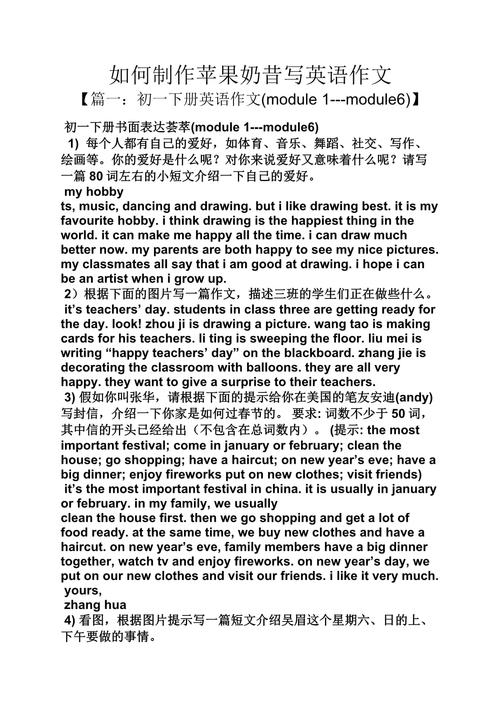 如何制作苹果奶昔写英语作文
【篇一：初一下册英语作文(module 1---module6)】
初一下册书面表达荟萃(module 1---module6)
1) 每个人都有自己的爱好，如体育、音乐、舞蹈、社交、写作、
绘画等。你的爱好是什么呢？对你来说爱好又意味着什么呢？请写
一篇 80 词左右的小短文介绍一下自己的爱好。
my hobby
ts, music, dancing and drawing. but i like drawing best. it is my
favourite hobby. i think drawing is the happiest thing in the
world. it can make me happy all the time. i can draw much
better now. my parents are both happy to see my nice pictures.
my classmates all say that i am good at drawing. i hope i can
be an artist when i grow up.
2）根据下面的图片写一篇作文，描述三班的学生们正在做些什么。
it’s teachers’ day. students in class three are getting ready for
the day. look! zhou ji is drawing a picture. wang tao is making
cards for his teachers. li ting is sweeping the floor. liu mei is
writing “happy teachers’ day” on the blackboard. zhang jie is
decorating the classroom with balloons. they are all very
happy. they want to give a surprise to their teachers.
3) 假如你叫张华，请根据下面的提示给你在美国的笔友安迪(andy)
写封信，介绍一下你家是如何过春节的。 要求: 词数不少于 50 词，
其中信的开头已经给出（不包含在总词数内）。 (提示: the most
important festival; come in january or february; clean the
house; go shopping; have a haircut; on new year’s eve; have a
big dinner; enjoy fireworks put on new clothes; visit friends)
it’s the most important festival in china. it is usually in january
or february. in my family, we usually
clean the house first. then we go shopping and get a lot of
food ready. at the same time, we buy new clothes and have a
haircut. on new year’s eve, family members have a big dinner
together, watch tv and enjoy fireworks. on new year’s day, we
put on our new clothes and visit our friends. i like it very much.
yours,
zhang hua
4) 看图，根据图片提示写一篇短文介绍吴眉这个星期六、日的上、
下午要做的事情。